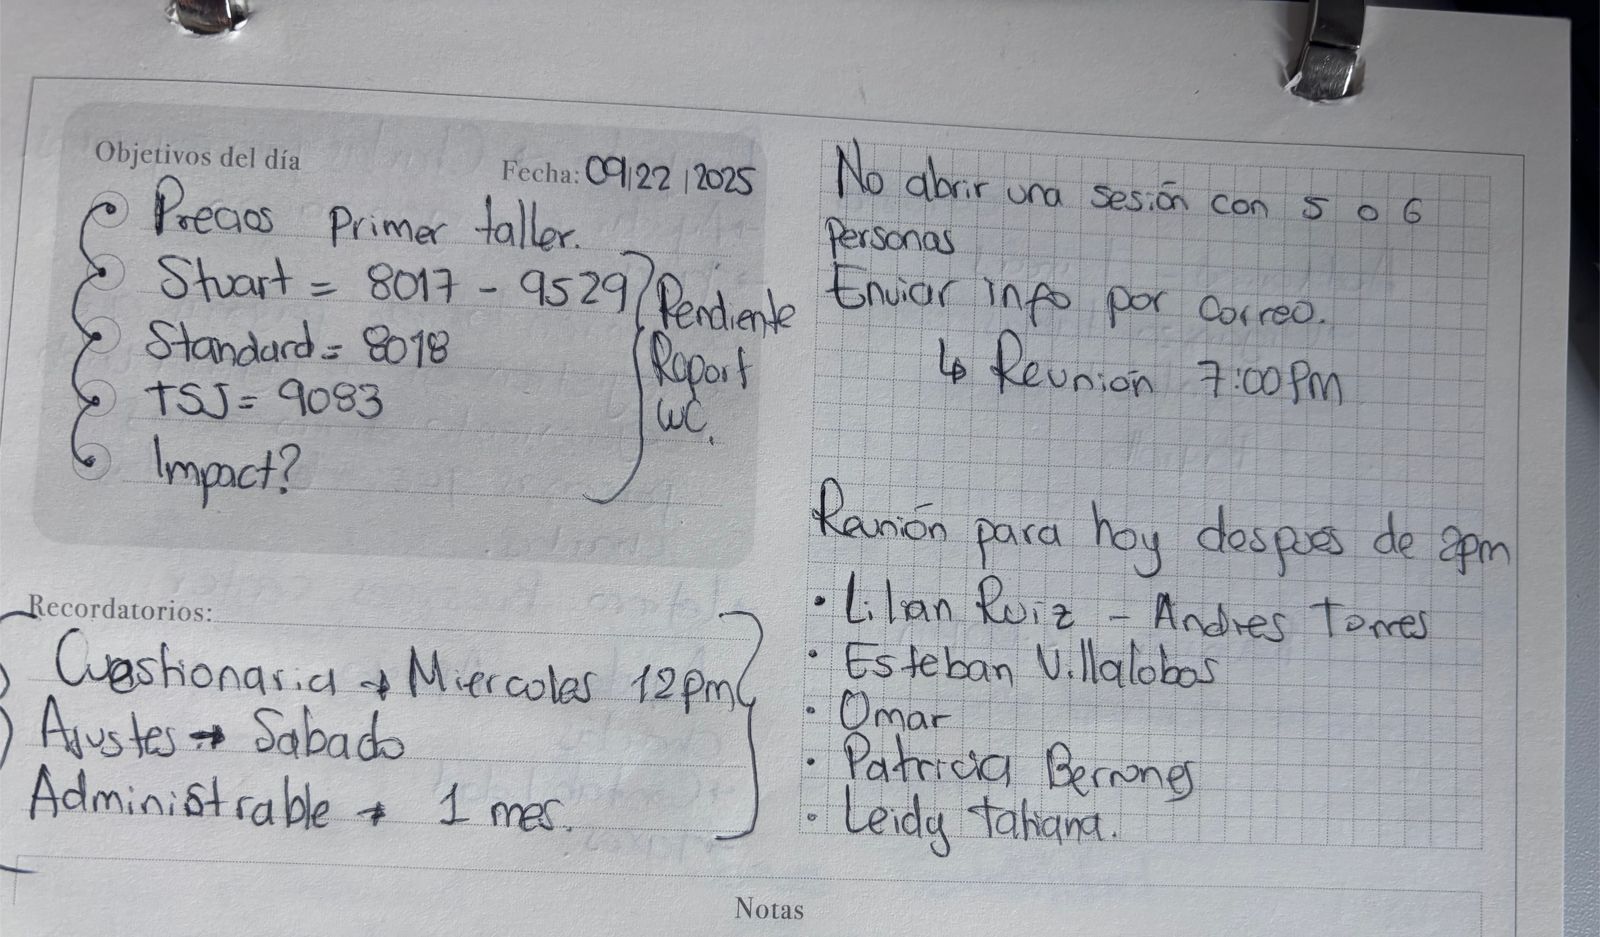 Objetivos del día
Fecha: 09/22/2025
Precios Primer taller.
Stuart = 8017 - 9529
Standard = 8018
TSJ = 9083
Impact?
Pendiente
Report
WC.
Recordatorios:
Cuestionario → Miercoles 12pm
Ajustes → Sabado
Administrable → 1 mes.
No abrir una sesión con 5 o 6
Personas
Enviar info por correo.
↳ Reunión 7:00Pm
Reunión para hoy despues de 2pm
• Lilian Ruiz - Andres Torres
• Esteban Villalobos
• Omar
• Patricia Berrones
• Leidy tatiana.
Notas